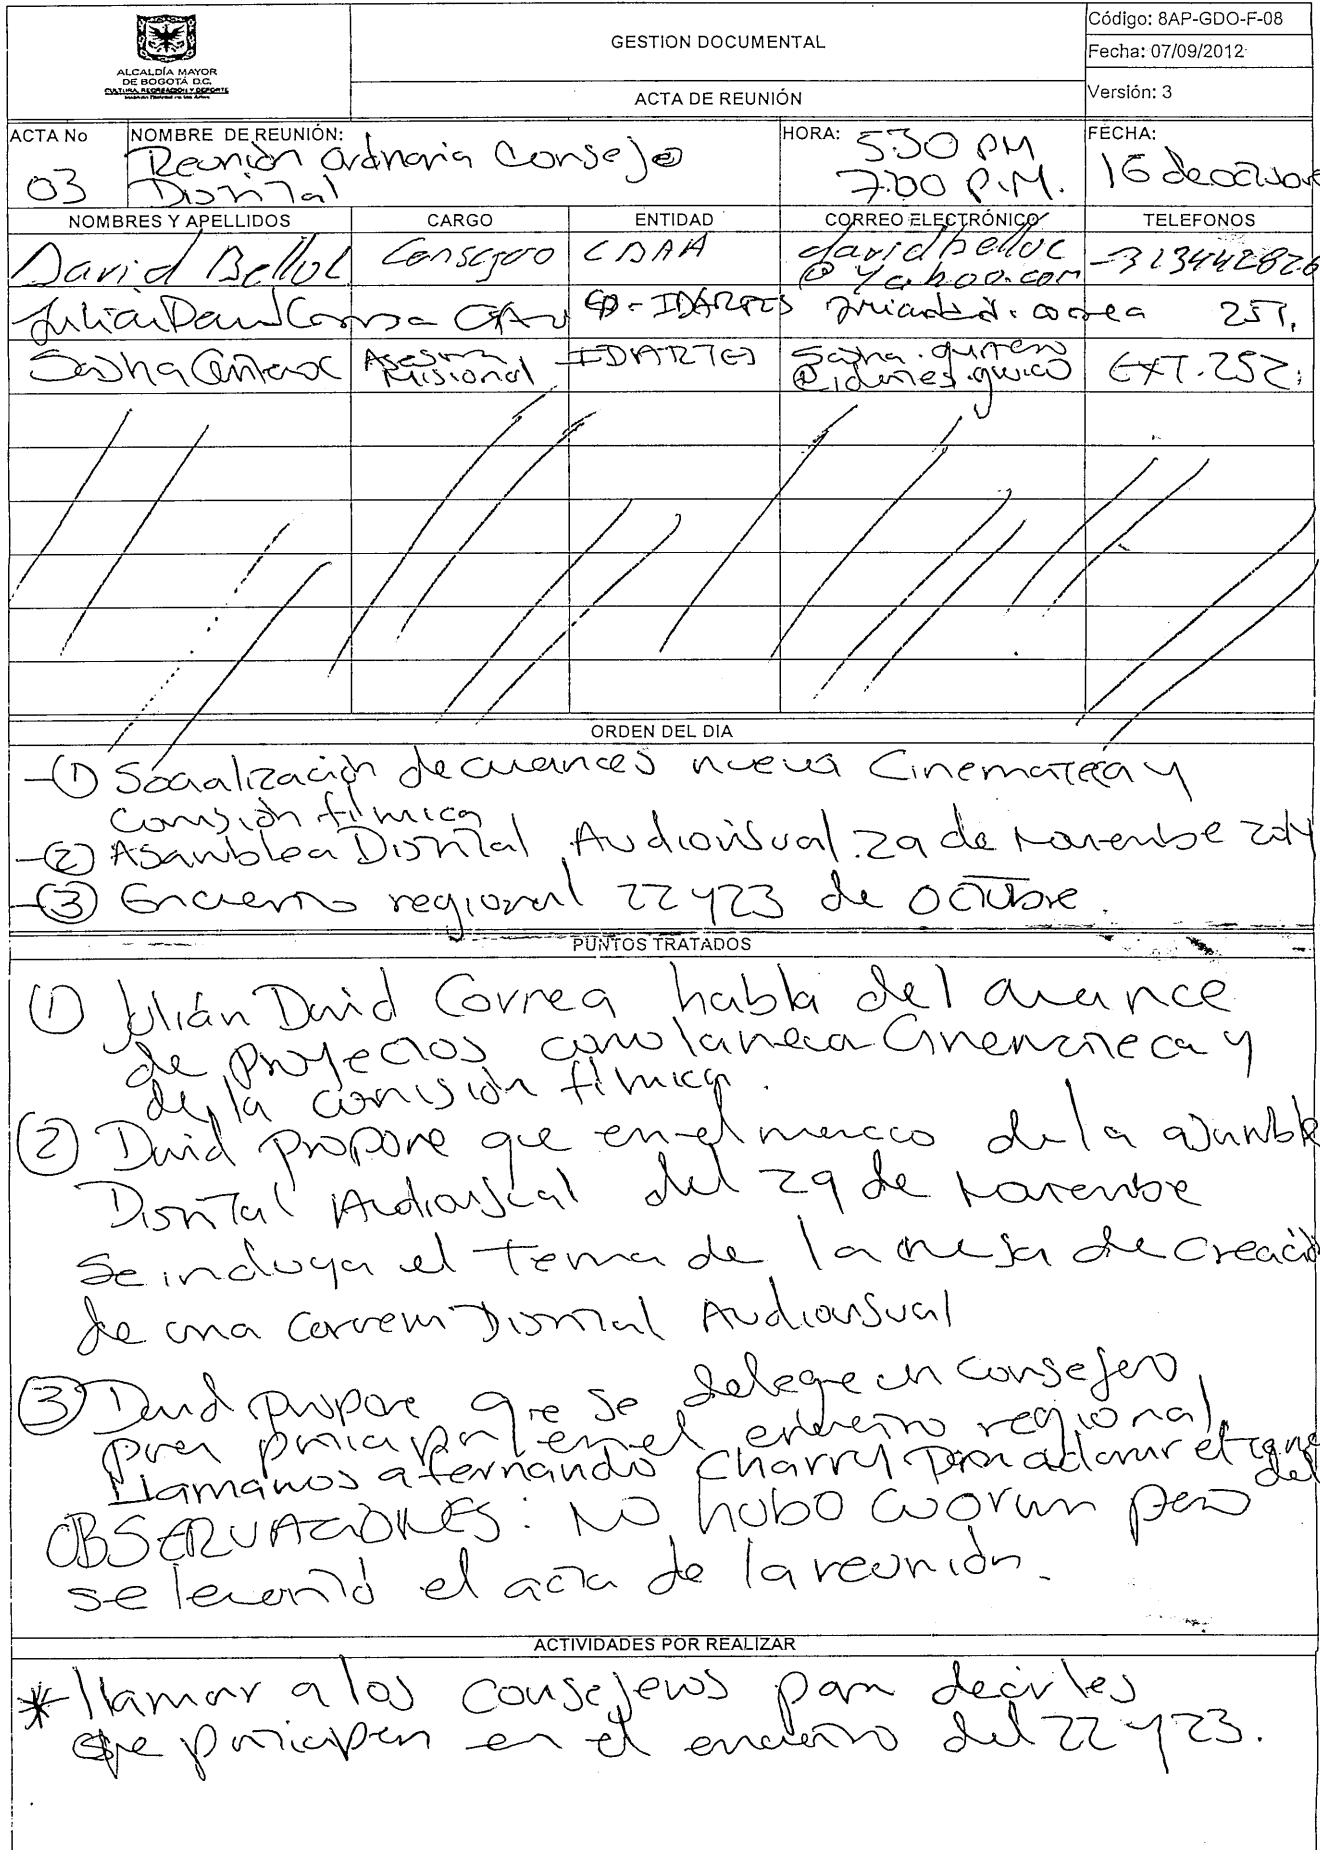 ALCALDÍA MAYOR
DE BOGOTÁ D.C.
CULTURA, RECREACIÓN Y DEPORTE
GESTION DOCUMENTAL
ACTA DE REUNIÓN
Código: 8AP-GDO-F-08
Fecha: 07/09/2012
Versión: 3
ACTA No
03
NOMBRE DE REUNIÓN:
Reunión ordinaria Consejo
Distrital
HORA: 5:30 PM
7:00 P.M.
FECHA:
16 de octubre
NOMBRES Y APELLIDOS CARGO ENTIDAD CORREO ELECTRÓNICO TELEFONOS
David Belluc Consejero CDAA davidbelluc
@yahoo.com 313442826
Julián David Correa IDARTES correa 251.
Sasha Asesora
Misional IDARTES EXT. 252.
ORDEN DEL DIA
-① Socialización de avances nueva Cinemateca y
Comisión fílmica
-② Asamblea Distrital Audiovisual 29 de Noviembre 2014
-③ Encuentro regional 22 y 23 de Octubre.
PUNTOS TRATADOS
① Julián David Correa habla del avance
de proyectos como la nueva Cinemateca y
de la comisión fílmica.
② David propone que en el marco de la asamble
Distrital Audiovisual del 29 de Noviembre
se incluya el tema de la mesa de creació
de una Distrital Audiovisual
③ David propone que se delegue un consejero
para participar en el encuentro regional,
Llamamos a Fernando Charry para
del
OBSERVACIONES: No hubo cuorum pero
se levantó el acta de la reunión.
ACTIVIDADES POR REALIZAR
* llamar a los consejeros para decirles
que participen en el encuentro del 22 y 23.